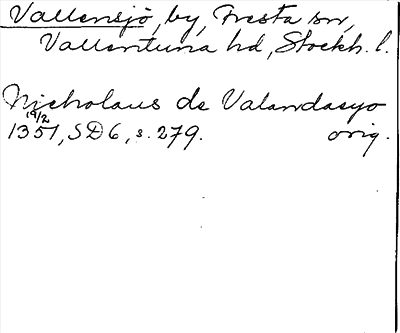 Vallensjö, by, Fresta sn,
Vallentuna hd, Stockh. l.
Nicholaus de Valandasyo
19/2
1351, SD6, s. 279. orig.